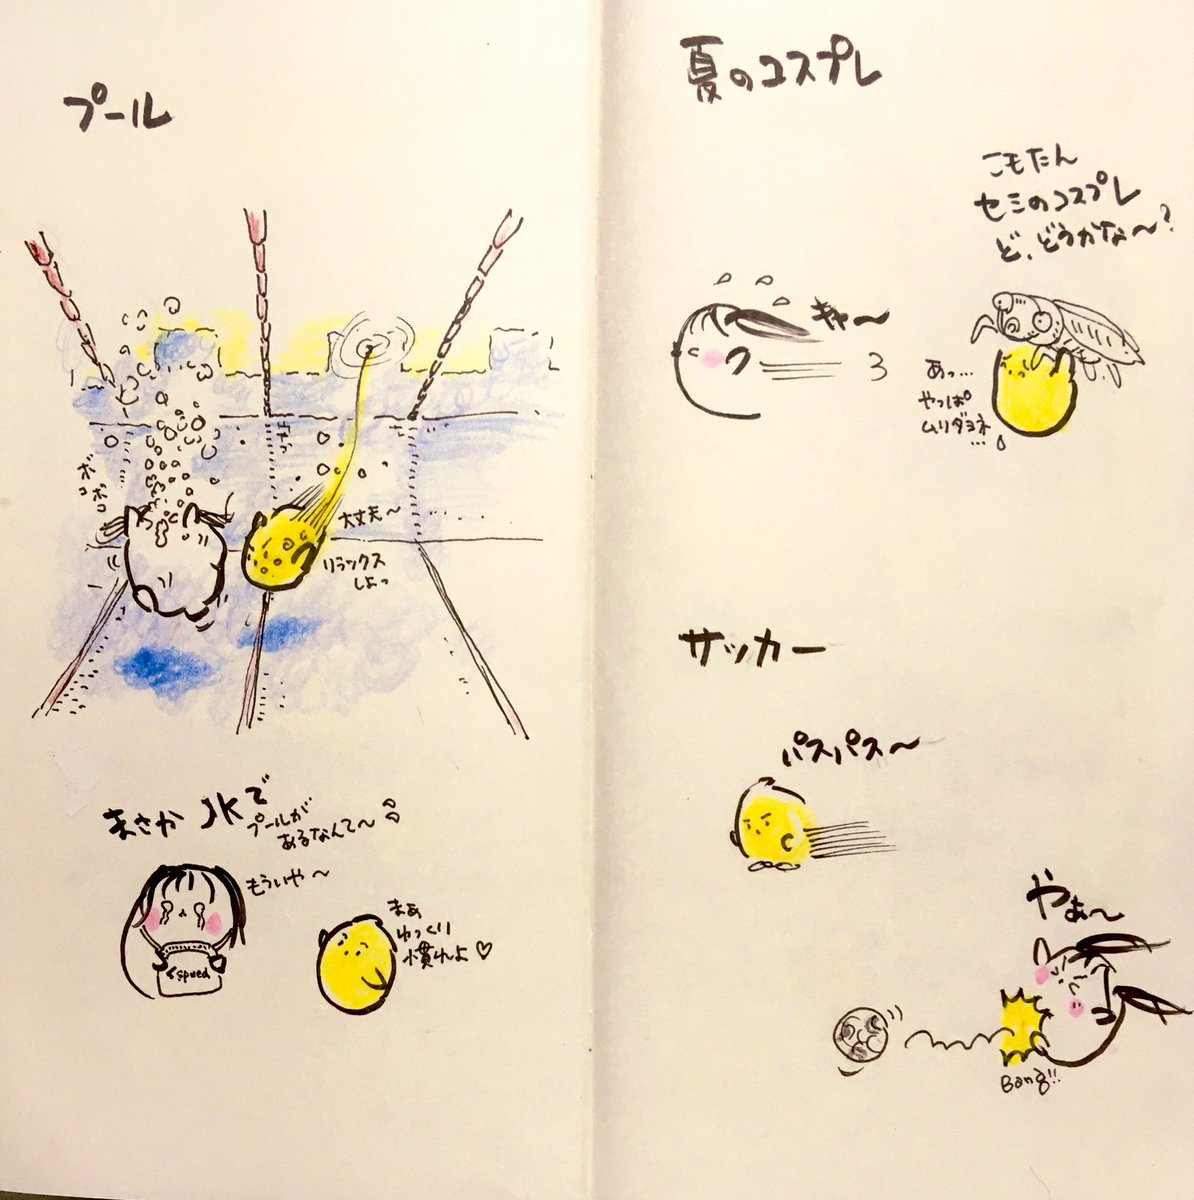 プール
ボコ
ボコ
大丈夫〜
リラックス
しよっ
まさか JKで
プールが
あるなんて〜
もういや〜
まあ
ゆっくり
慣れよ♡
夏のコスプレ
こもたん
セミのコスプレ
ど、どうかな〜?
キャ〜
あっ…
やっぱ
ムリダヨネ
…
サッカー
パスパス〜
やぁ〜
Bang!!